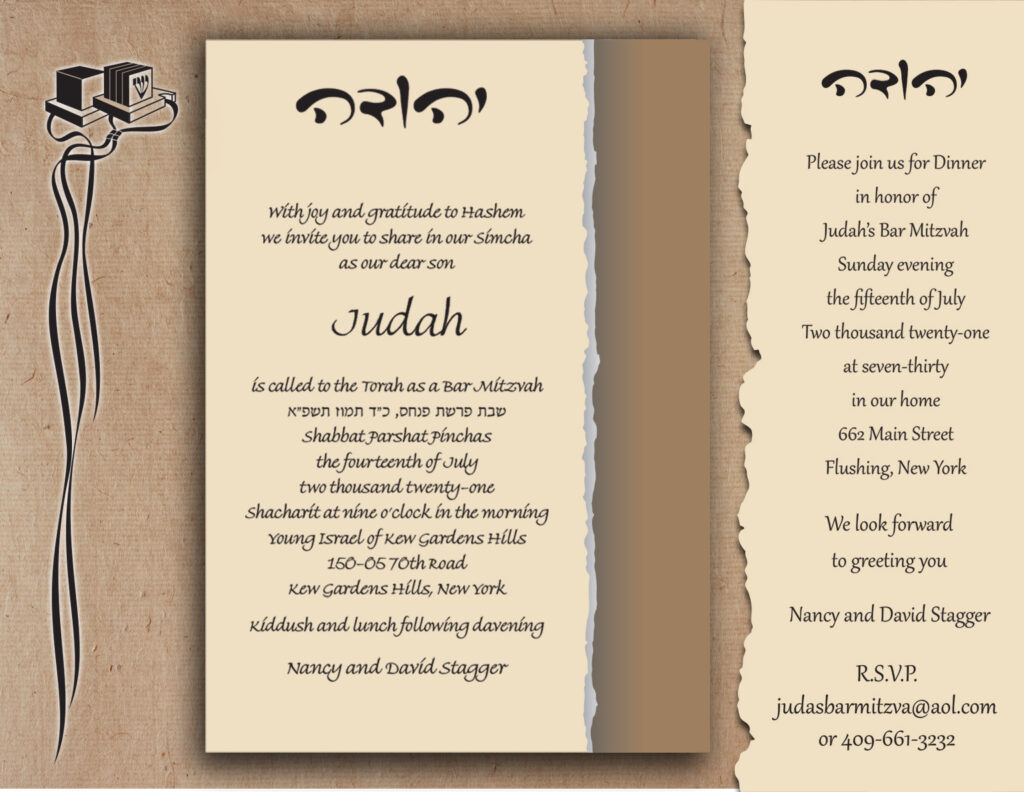 יהודה
With joy and gratitude to Hashem
we invite you to share in our Simcha
as our dear son
Judah
is called to the Torah as a Bar Mitzvah
שבת פרשת פנחס, כ"ד תמוז תשפ"א
Shabbat Parshat Pinchas
the fourteenth of July
two thousand twenty-one
Shacharit at nine o'clock in the morning
Young Israel of Kew Gardens Hills
150-05 70th Road
Kew Gardens Hills, New York
Kiddush and lunch following davening
Nancy and David Stagger
יהודה
Please join us for Dinner
in honor of
Judah's Bar Mitzvah
Sunday evening
the fifteenth of July
Two thousand twenty-one
at seven-thirty
in our home
662 Main Street
Flushing, New York
We look forward
to greeting you
Nancy and David Stagger
R.S.V.P.
judasbarmitzva@aol.com
or 409-661-3232
ש